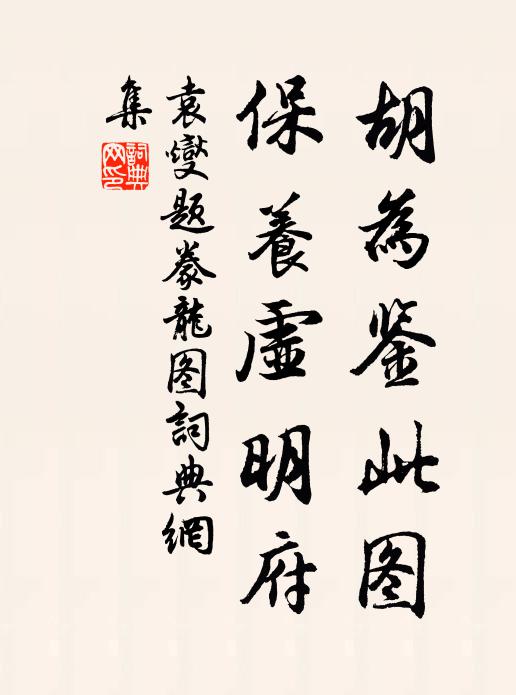 胡為鉴此图
保養虛明府
袁燮题豢龍图詞典網
集
詞典
网印